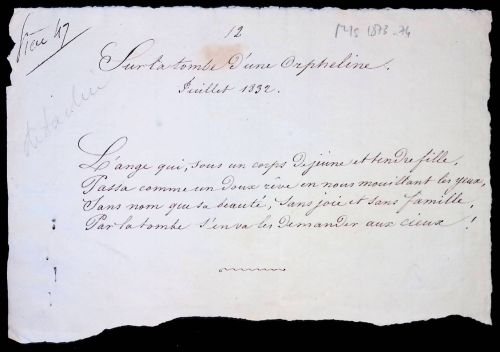 12
Ms 1873-74
Sur la tombe d'une Orpheline.
Juillet 1832.
L'ange qui, sous un corps de jeune et tendre fille,
Passa comme un doux rêve en nous mouillant les yeux,
Sans nom que sa beauté, sans joie et sans famille,
Par la tombe s'en va les demander aux cieux !